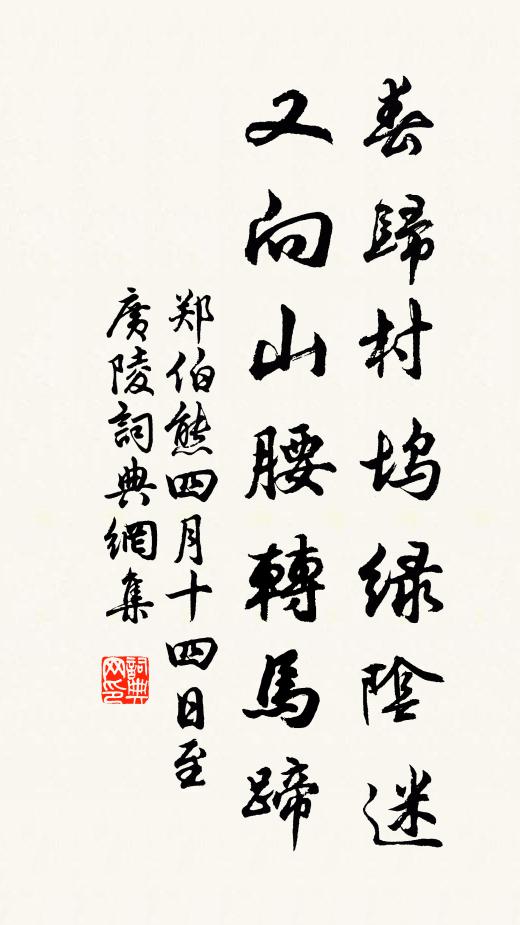 春歸村塢綠陰迷
又向山腰轉馬蹄
郑伯熊四月十四日至
廣陵詞典網集
詞典网印